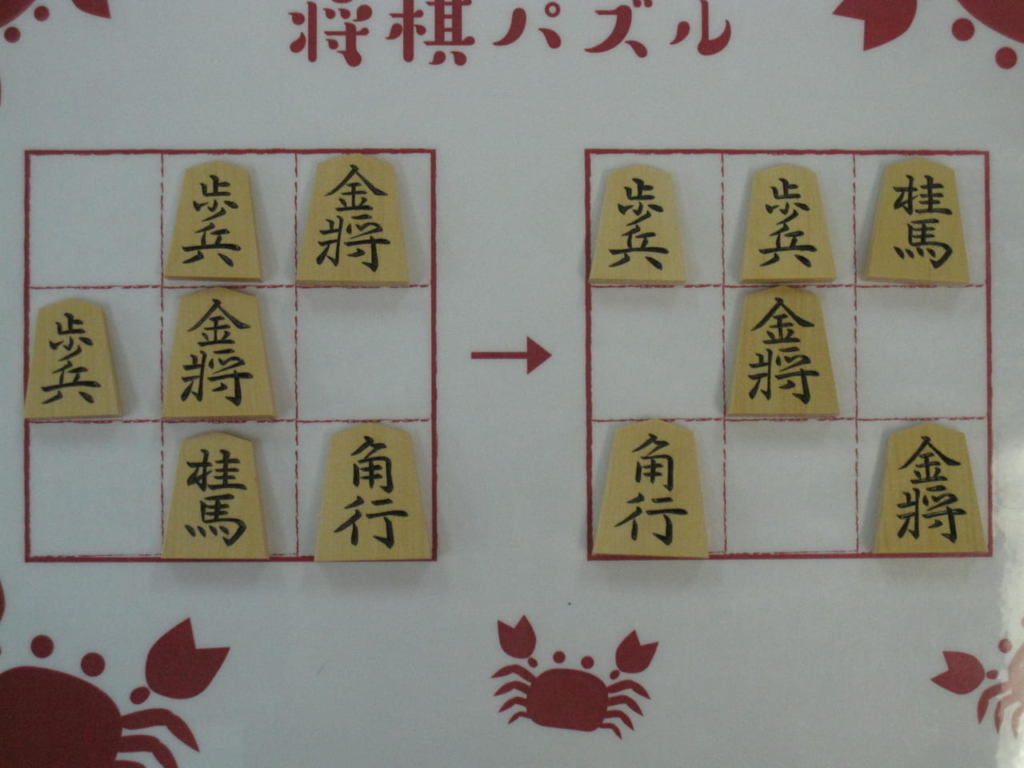 将棋パズル
歩兵 金将
歩兵 金将
桂馬 角行
歩兵 歩兵 桂馬
金将
角行 金将